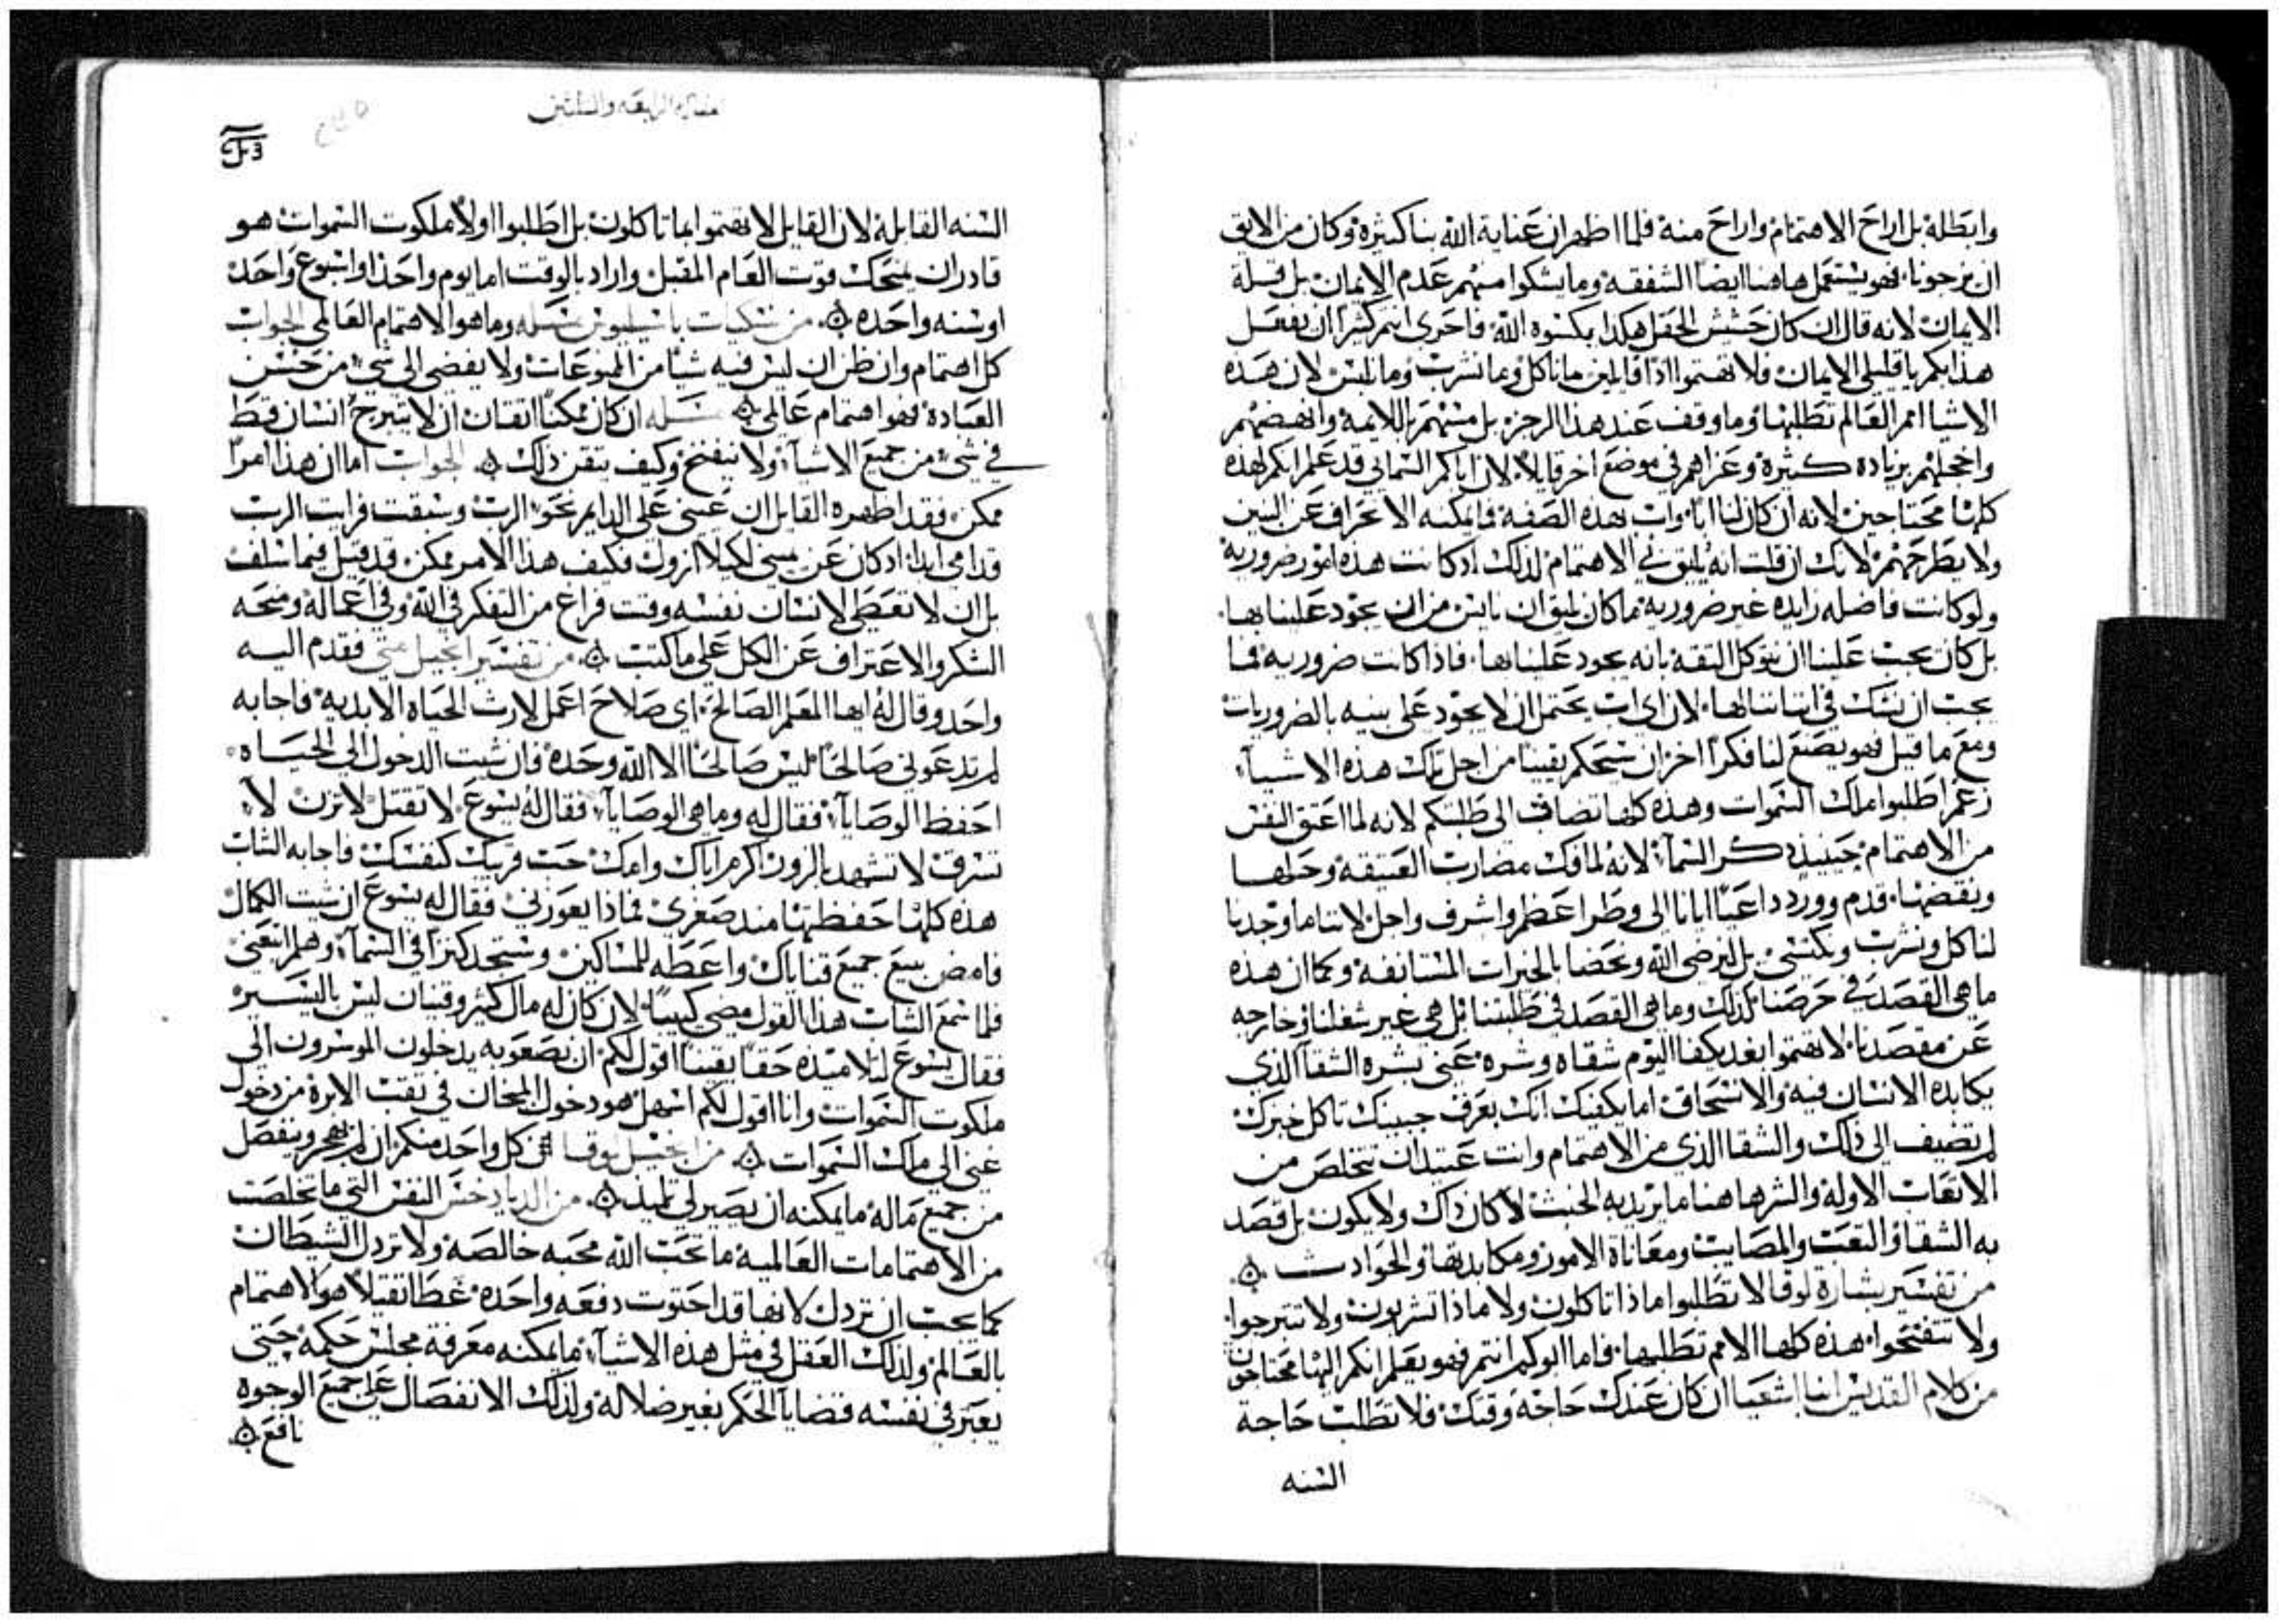 وابطله بل اراح الاهتمام واراح منه فلما اظهر ان عناية الله بنا كثيره وكان من الايق
ان يرجونا فهو يستعمل هاهنا ايضا الشفقه وما يشكوا منهم عدم الايمان بل قلة
الايمان لانه قال ان كان حشيش الحقل هكذا يكسوه الله فاحرى انتم كثيرا ان يفعل
هذا بكم يا قليلي الايمان فلا تهتموا اذا قايلين ما ناكل وما نشرب وما نلبس لان هذه
الاشيا امم العالم تطلبها وما وقف عند هذا الرجز بل باللايمة وانهضهم
واخجلهم بزيادة كثيرة وعزاهم في موضع اخر قايلا لان اباكم السماني قد علم انكم لهذه
كلها محتاجين لانه ان كان لنا ابا واب بهذه الصفه فما يمكنه الاعراف عن البنين
ولا يطرحهم لانك ان قلت انه يليق بي الاهتمام لذلك اذ كانت هذه امور ضرورية
ولو كانت فاضله زايده غير ضرورية ما كان يليق ان نايس من ان يجود علينا بها
بل كان يجب علينا ان نتوكل الثقه بانه يجود علينا بها فاذا كانت ضروريه فما
يجب ان نشك في اتيانها لان اي اب يحتمل ان لا يجود على بنيه بالضروريات
ومع ما قيل فهو يصنع لنا فكرا اخر ان يستحكم يقينا من اجل تلك هذه الاشياء
زعم اطلبوا ملك السموات وهذه كلها تضاف الى طلبتكم لانه لما اعتق النفس
من الاهتمام حينيذ ذكر السماء لانه لما فك مضارب العتيقه وحلها
ونقضها قدم وورد داعيا ايانا الى وطر اعظم واشرف واجل لاننا ما وجدنا
لناكل ونشرب ونكتسي بل لنرضي الله ونحضا بالخيرات المستانفه وكما ان هذه
ما هي القصد في حرصنا كذلك وما هي القصد في طلبتنا بل هي غير شغلنا وخارجه
عن مقصدنا لا تهتموا بغد يكفا اليوم شقاه وشره عنى بشره الشقا الذي
يكابده الانسان فيه والانسحاق اما يكفيك انك بعرق جبينك تاكل خبزك
لم تضيف الى ذلك والشقا الذي من الاهتمام وانت عتيد ان تتخلص من
الاتعاب الاوله والشر هاهنا ما يريد به الخبث لا كان ذاك ولا يكون بل قصد
به الشقا والتعب والمصايب ومعاناة الامور ومكابدتها والحوادث
من تفسير بشارة لوقا لا تطلبوا ماذا تاكلون ولا ماذا تشربون ولا تتبرجوا
ولا تتفتحوا هذه كلها الامم تطلبها فاما ابوكم انتم فهو يعلم انكم اليها محتاجون
من كلام القديس انبا اشعيا ان كان عندك حاجة وقتك فلا تطلب حاجة
السنه
الرابعه والثلثين
السنه القابله لان القايل لا تهتموا بما تاكلون بل اطلبوا اولا ملكوت السموات هو
قادر ان يمنحك قوت العام المقبل واراد بالوقت اما يوم واحد او اسبوع واحد
او سنه واحده من باسيليوس مسله وما هو الاهتمام العالمي الجواب
كل اهتمام وان ظن ان ليس فيه شيا من الممنوعات ولا يفضي الى شي من حسن
العبادة فهو اهتمام عالمي مسله ان كان ممكنا اتقان ان لا يتبرج انسان قط
في شي من جميع الاشياء ولا يتفتح وكيف يتقن ذلك الجواب اما ان هذا امرا
ممكن فقد اظهره القايل ان عيني على الدايم نحو الرب وسبقت فرايت الرب
قدامي ابدا اذ كان عن يميني لكيلا ازول فكيف هذا الامر ممكن قد قيل فيما سلف
بل ان لا تعطى لانسان نفسه وقت فراغ من التفكر في الله وفي اعماله ومنحه
الشكر والاعتراف عن الكل على ما كتبت من تفسير انجيل متى فقدم اليه
واحد وقال له ايها المعلم الصالح اي صلاح اعمل لارث الحياه الابديه فاجابه
لم تدعوني صالحا ليس صالحا الا الله وحده فان شيت الدخول الى الحياه
احفظ الوصايا فقال له وما هي الوصايا فقال له يسوع لا تقتل لا تزن لا
تسرق لا تشهد بالزور اكرم اباك وامك حب قريبك كنفسك فاجابه الشاب
هذه كلها حفظتها منذ صغري فماذا يعوزني فقال له يسوع ان شيت الكمال
فامض بيع جميع قناياك واعطه للمساكين وستجد كنزا في السماء وهلم اتبعني
فلما سمع الشاب هذا القول مضى كييبا لان كان له مال كثير وقنيان ليس باليسير
فقال يسوع لتلاميذه حقا يقينا اقول لكم ان بصعوبه يدخلون الموسرون الى
ملكوت السموات وانا اقول لكم اسهل هو دخول المحان في ثقب الابرة من دخول
غني الى ملك السموات من انجيل لوقا كل واحد منكم ان لم يهجر وينفصل
من جميع ماله ما يمكنه ان يصير لي تلميذ النفس التي ما تخلصت
من الاهتمامات العالميه ما تحب الله محبه خالصه ولا ترذل الشيطان
كما يجب ان ترذل لانها قد احتوت دفعه واحده غطا ثقيلا هو الاهتمام
بالعالم ولذلك العقل في مثل هذه الاشياء ما يمكنه معرفة مجلس حكمه حتى
يعبر في نفسه قضايا الحكم بغير ضلاله ولذلك الانفصال على جميع الوجوه
نافع